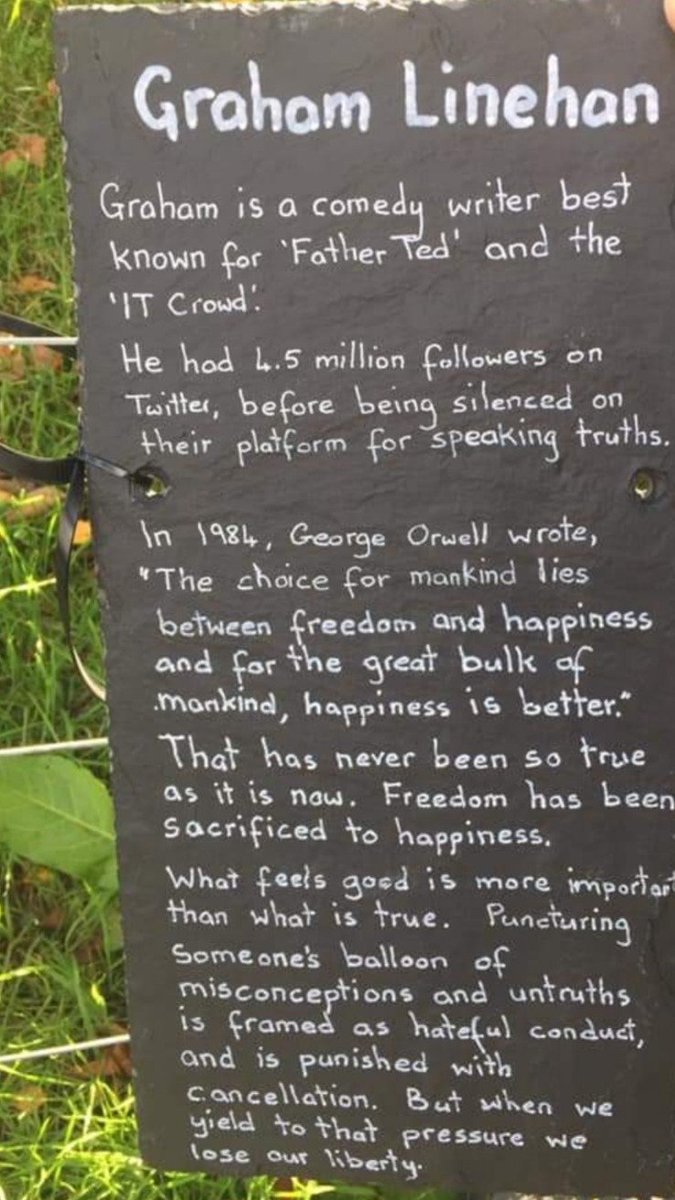 Graham Linehan
Graham is a comedy writer best
known for 'Father Ted' and the
'IT Crowd'.
He had 4.5 million followers on
Twitter, before being silenced on
their platform for speaking truths.
In 1984, George Orwell wrote,
"The choice for mankind lies
between freedom and happiness
and for the great bulk of
mankind, happiness is better."
That has never been so true
as it is now. Freedom has been
sacrificed to happiness.
What feels good is more important
than what is true. Puncturing
someone's balloon of
misconceptions and untruths
is framed as hateful conduct,
and is punished with
cancellation. But when we
yield to that pressure we
lose our liberty.